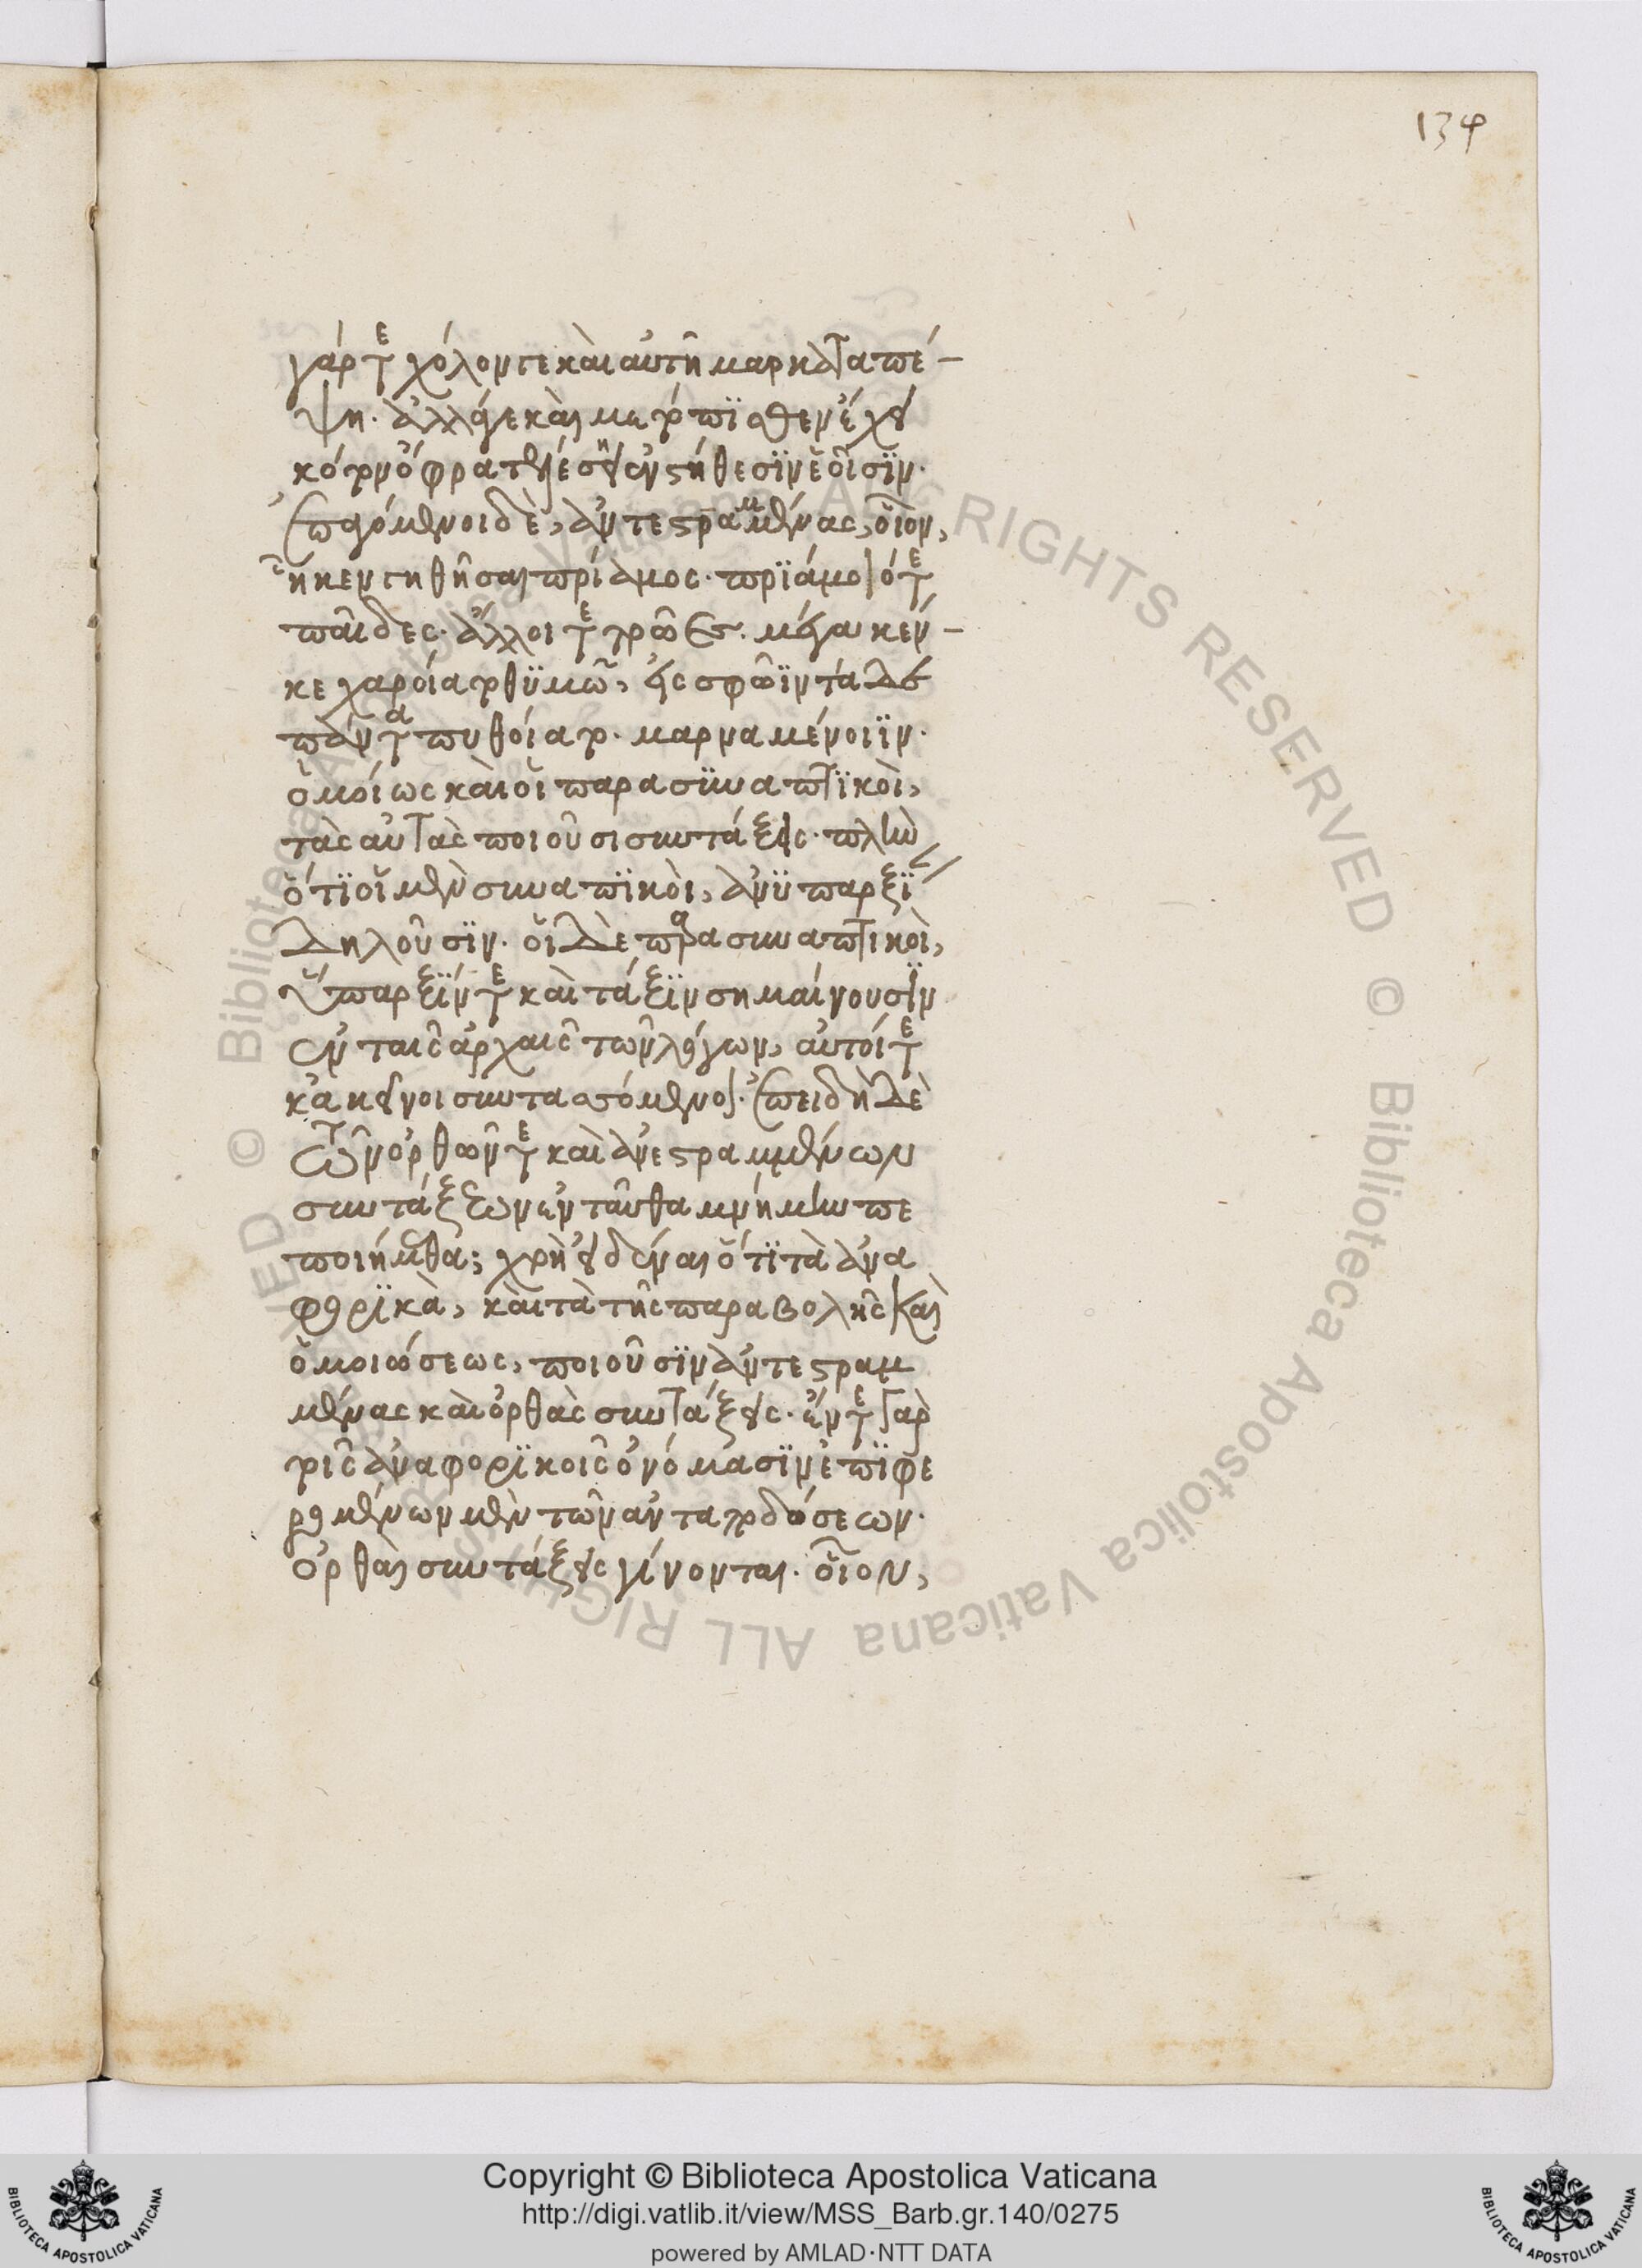 134
γάρ τε χόλον τε καὶ αὐτῆμαρ καταπέ-
ψη. ἀλλάγε καὶ μετόπισθεν ἔχει
κότον ὄφρα τελέσση ἐν στήθεσιν ἑοῖσιν.
ἑπόμενοι δὲ, ἀντεστραμμένας, οἷον,
ἦ κεν γηθῆσαι πρίαμος. πριάμοιό τε
παῖδες. ἄλλοι τε τρῶες. μέγα κέν-
κε χαροίατο θυμῶ, εἰ σφῶϊν τάδε
πάντα πυθοίατο. μαρναμένοιϊν.
ὁμοίως καὶ οἱ παρασυναπτικοὶ,
τὰς αὐτὰς ποιοῦσι συντάξεις. πλὴν
ὅτι οἱ μὲν συναπτικοὶ, ἀνυπαρξί
δηλοῦσιν. οἱ δὲ παρασυναπτικοὶ,
ὕπαρξίν τε καὶ τάξιν σημαίνουσιν
ἐν ταῖς ἀρχαῖς τῶν λόγων, αὐτοί τε
κἀκεῖνοι συντασσόμενοι. ἐπειδὴ δὲ
τῶν ὀρθῶν τε καὶ ἀνεστραμμένων
συντάξεων ἐνταῦθα μνήμην πε
ποιήμεθα; χρὴ εἰδέναι ὅτι τὰ ἀνα
φορικὰ, καὶ τὰ τῆς παραβολῆς καὶ
ὁμοιώσεως, ποιοῦσιν ἀντεστραμ
μένας καὶ ὀρθὰς συντάξεις. ἔν τε γὰρ
τοῖς ἀναφορικοῖς ὀνόμασιν ἐπιφε
ρομένων μὲν τῶν ἀνταποδόσεων.
ὀρθαὶ συντάξεις γίνονται. οἷον,
Copyright © Biblioteca Apostolica Vaticana
http://digi.vatlib.it/view/MSS_Barb.gr.140/0275
powered by AMLAD·NTT DATA
BIBLIOTECA APOSTOLICA VATICANA
BIBLIOTECA APOSTOLICA VATICANA